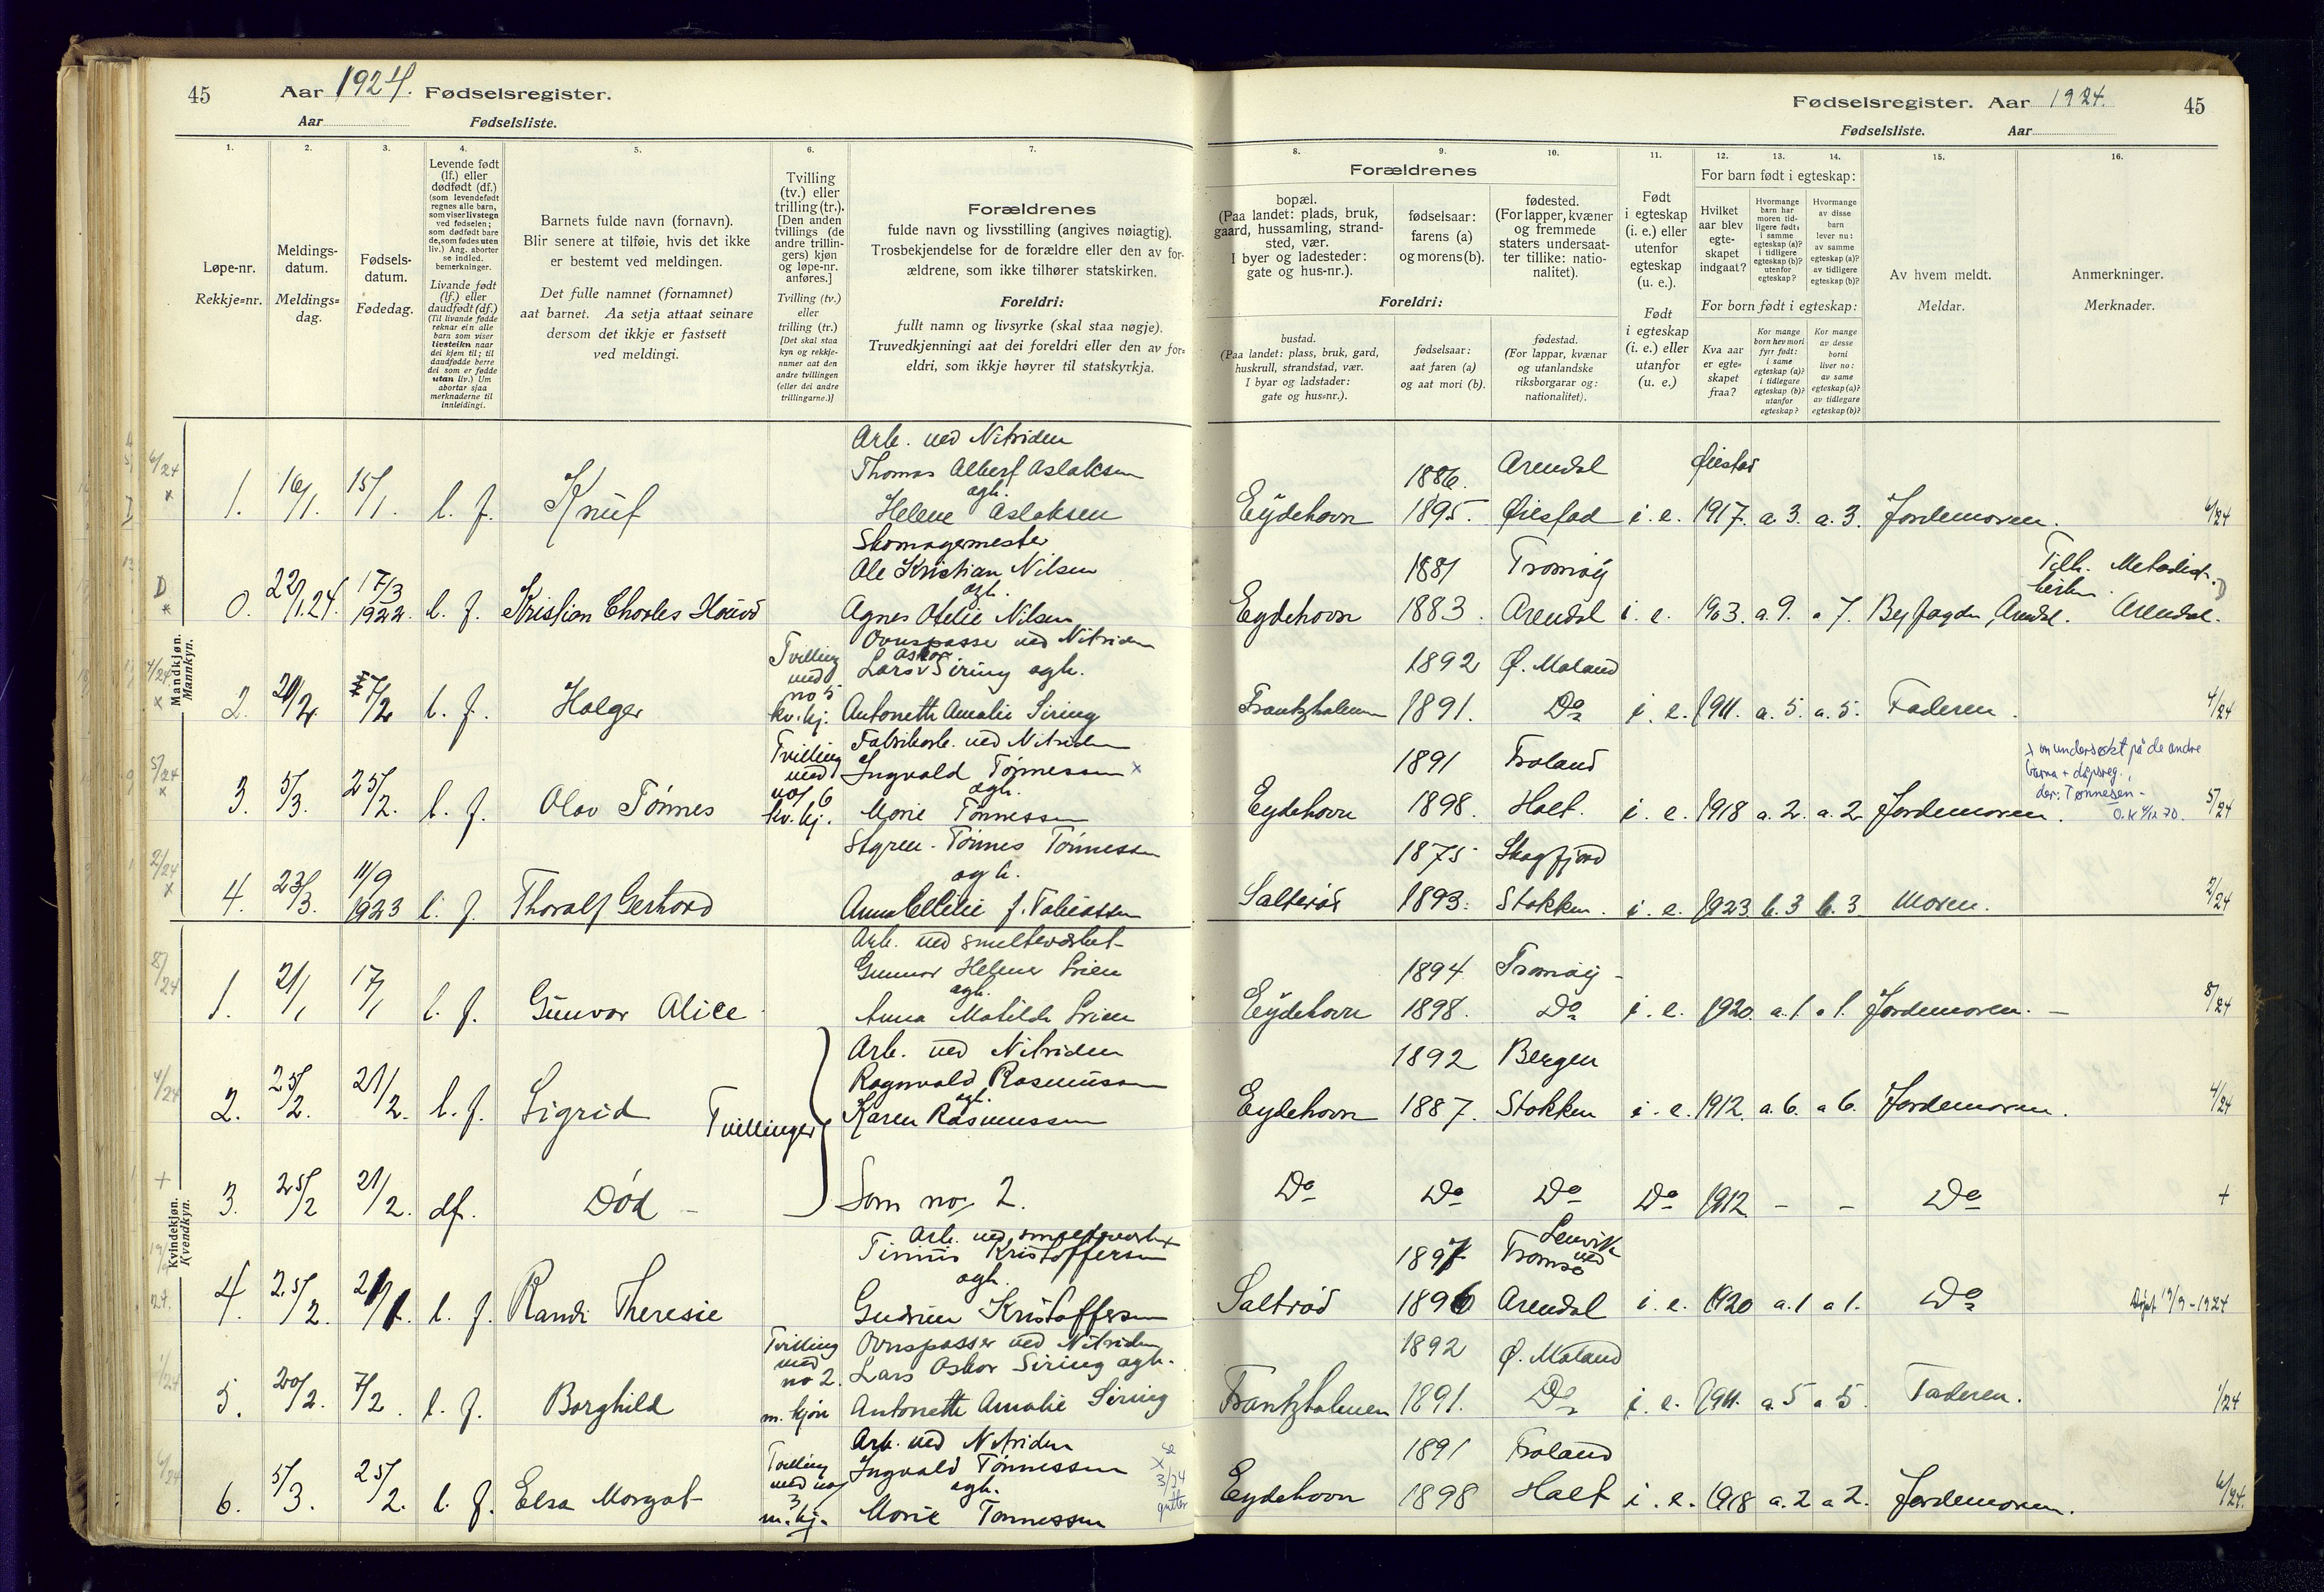 45 Aar 1924. Fødselsregister.
Aar Fødselsliste.
1. 2. 3. 4. 5. 6. 7.
Løpe-nr.
Rekkje=nr.
Meldings-
datum.
Meldings=
dag.
Fødsels-
datum.
Fødedag.
Levende født
(lf.) eller
dødfødt (df.)
(som levendefødt
regnes alle barn,
som viser livstegn
ved fødselen;
som dødfødt bare
de, som fødes uten
liv.) Ang. aborter
se indled.
bemerkninger.
Livande født
(lf.) eller
daudfødt (df.)
(Til livande fødde
reknar ein alle
barn som viser
livsteikn naar
dei kjem til; til
daudfødde berre
dei som er fødde
utan liv.) Um
abortar sjaa
merknaderne til
innleidingi.
Barnets fulde navn (fornavn).
Blir senere at tilføie, hvis det ikke
er bestemt ved meldingen.
Det fulle namnet (fornamnet)
aat barnet. Aa setja attaat seinare
dersom det ikkje er fastsett
ved meldingi.
Tvilling
(tv.) eller
trilling (tr.).
[Den anden
tvillings (de
andre trillin-
gers) kjøn
og løpe-nr.
anføres.]
Tvilling (tv.)
eller
trilling (tr.)
[Det skal staa
kyn og rekkje-
numer aat den
andre tvillingen
(eller dei andre
trillingarne.)]
Forældrenes
fulde navn og livsstilling (angives nøiagtig).
Trosbekjendelse for de forældre eller den av for-
ældrene, som ikke tilhører statskirken.
Foreldri:
fullt namn og livsyrke (skal staa nøgje).
Truvedkjenningi aat dei foreldri eller den av for=
eldri, som ikkje høyrer til statskyrkja.
Mandkjøn.
Mannkyn.
Arb. ved Nitriden
Thomas Albert Aslaksen
1. 16/1. 15/1. l. f. Knut
ogh.
Helene Aslaksen
Skomagermester
Ole Kristian Nilsen
ogh.
0. 22/1.24. 17/3 1922. l. f. Kristian Charles Haavd Agnes Otelie Nilsen
Tvilling
med
no 5
kv. kj.
Ovnspasser ved Nitriden
Lars Oskar Siring ogh.
2. 20/2. 7/2 l. f. Holger Antonette Amalie Siring
Tvilling
med
no 6
kv. kj.
Fabrikarb. ved Nitriden
Ingvald Tønnessen x
ogh.
3. 5/3. 25/2. l. f. Olav Tønnes Marie Tønnessen
Styrm. Tønnes Tønnessen
ogh.
4. 23/3. 11/9 1923 l. f. Thoralf Gerhard Anna Cecilie f. Tobiassen
Kvindekjøn.
Kvendkyn.
Arb. ved smelteverket
Gunnar Helmer Lien
ogh.
1. 21/1 17/1 l. f. Gunvor Alice Anna Matilde Lien
Arb. ved Nitriden
Ragnvald Rasmussen
ogh.
2. 25/2. 21/2. l. f. Sigrid Tvillinger Karen Rasmussen
3. 25/2 21/2. df. Død – Som no 2.
Arb. ved smelteverket
Kristoffersen
ogh.
4. 25/2. l. f. Randi Theresie Gudrun Kristoffersen
Tvilling
med
no 2.
m. kjøn
Ovnspasser ved Nitriden
Lars Oskar Siring ogh.
5. 20/2. 7/2. l. f. Borghild Antonette Amalie Siring
Tvilling
med no
3
m. kj.
Arb. ved Nitriden
Ingvald Tønnessen
ogh.
se
x
3/24
gutter
6. 5/3. 25/2. l. f. Elsa Margot Marie Tønnessen
Fødselsregister. Aar 1924. 45
Fødselsliste. Aar
8. 9. 10. 11. 12. 13. 14. 15. 16.
Forældrenes
bopæl.
(Paa landet: plads, bruk,
gaard, hussamling, strand-
sted, vær.
I byer og ladesteder:
gate og hus-nr.).
fødselsaar:
farens (a)
og morens (b).
fødested.
(For lapper, kvæner
og fremmede
staters undersaat-
ter tillike: natio-
nalitet).
Foreldri:
bustad.
(Paa landet: plass, bruk, gard,
huskrull, strandstad, vær.
I byar og ladstader:
gate og hus=nr.).
fødselsaar:
aat faren (a)
og aat mori (b).
fødestad.
(For lappar, kvænar
og utanlandske
riksborgarar og:
nationalitet).
Født
i egteskap
(i. e.) eller
utenfor
egteskap
(u. e.).
Født
i egteskap
(i. e.) eller
utanfor
egteskap
(u. e.)
For barn født i egteskap:
Hvilket
aar blev
egte-
skapet
indgaat?
Hvormange
barn har
moren tid-
ligere født:
i samme
egteskap (a)?
i tidligere
egteskap (b)?
utenfor
egteskap?
Hvormange
av disse
barn
lever nu:
av samme
egteskap (a)?
av tidligere
egteskap (b)?
For born født i egteskap:
Kva aar
er egte=
skapet
fraa?
Kor mange
born hev mori
fyrr født:
i same
egteskap (a)?
i tidlegare
egteskap (b)?
utanfor
egteskap?
Kor mange
av desse
borni
liver no:
av same
egteskap (a)?
av tidlegare
egteskap (b)?
Av hvem meldt.
Meldar.
Anmerkninger.
Merknader.
1886. Arendal Øiestad
Eydehavn 1895. Øiestad i. e. 1917. a. 3. a. 3. Jordemoren. 6/24
1881 Tromøy Tilh. Metodist-
kirken
Eydehavn 1883. Arendal i. e. 1903. a. 9. a 7. Byfogden, Arendal. Arendal.
1892 Ø. Moland
Frantzholmen 1891. Do i. e. 1911. a. 5. a. 5. Faderen. 4/24
1891 Froland
x on undersøkt på de andre
barna + dåpsreg.
der: Tønnesen -
Eydehavn 1898. Holt. i. e. 1918 a. 2. a. 2. Jordemoren. 5/24
1875 Skogfjord
Salterød 1893. Stokken. i. e. 1923 b. 3 b. 3 Moren. 2/24
1894 Tromøy
Eydehavn 1898. Do i. e. 1920. a. 1 a 1. Jordemoren. – 8/24
1892 Bergen
Eydehavn 1887. Stokken i. e. 1912. a. 6. a 6. Jordemoren. 4/24
Do Do Do Do 1912 – – Do +
1897 Lenvik
ved
Tromsø
Saltrød 1896 Arendal i. e. 1920 a. 1 a 1. Do Døpt 19/9-1924
1892 Ø. Moland
Frantzholmen 1891. Do i. e. 1911. a. 5 a 5. Faderen. 1/24
1891 Froland
Eydehavn 1898 Holt i. e. 1918 a. 2 a 2. Jordemoren. 6/24.